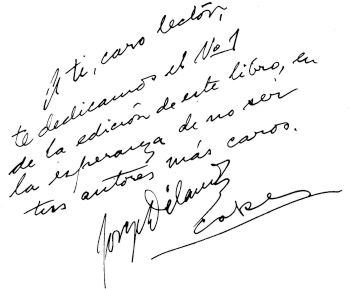 A ti, caro lector,
te dedicamos el Nº 1
de la edición de este libro, en
la esperanza de no ser
tus autores más caros.
Jorge Délano
Coke